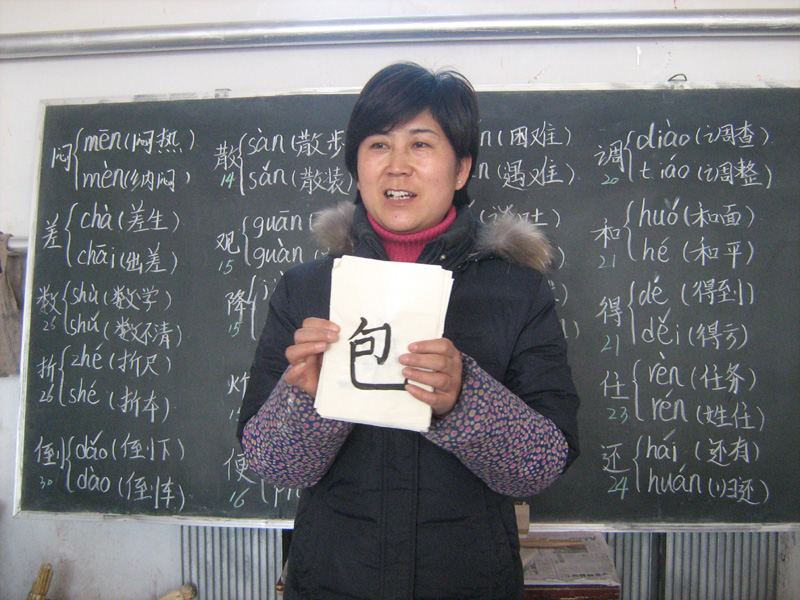 闷 mēn(闷热)
mèn(纳闷)
差 chà(差生)
chāi(出差)
数 25 shù(数学)
shǔ(数不清)
折 26 zhé(折尺)
shé(折本)
倒 30 dǎo(倒下)
dào(倒车)
散 14 sàn(散步
sǎn(散装)
观 15 guān(
guàn(
降 15
炸
便 16
(困难)
(遇难)
调 20 diào(调查)
tiáo(调整)
和 21 huó(和面)
hé(和平)
得 21 dé(得到)
děi(得亏)
任 23 rèn(任务)
rén(姓任)
还 24 hái(还有)
huán(归还)
包